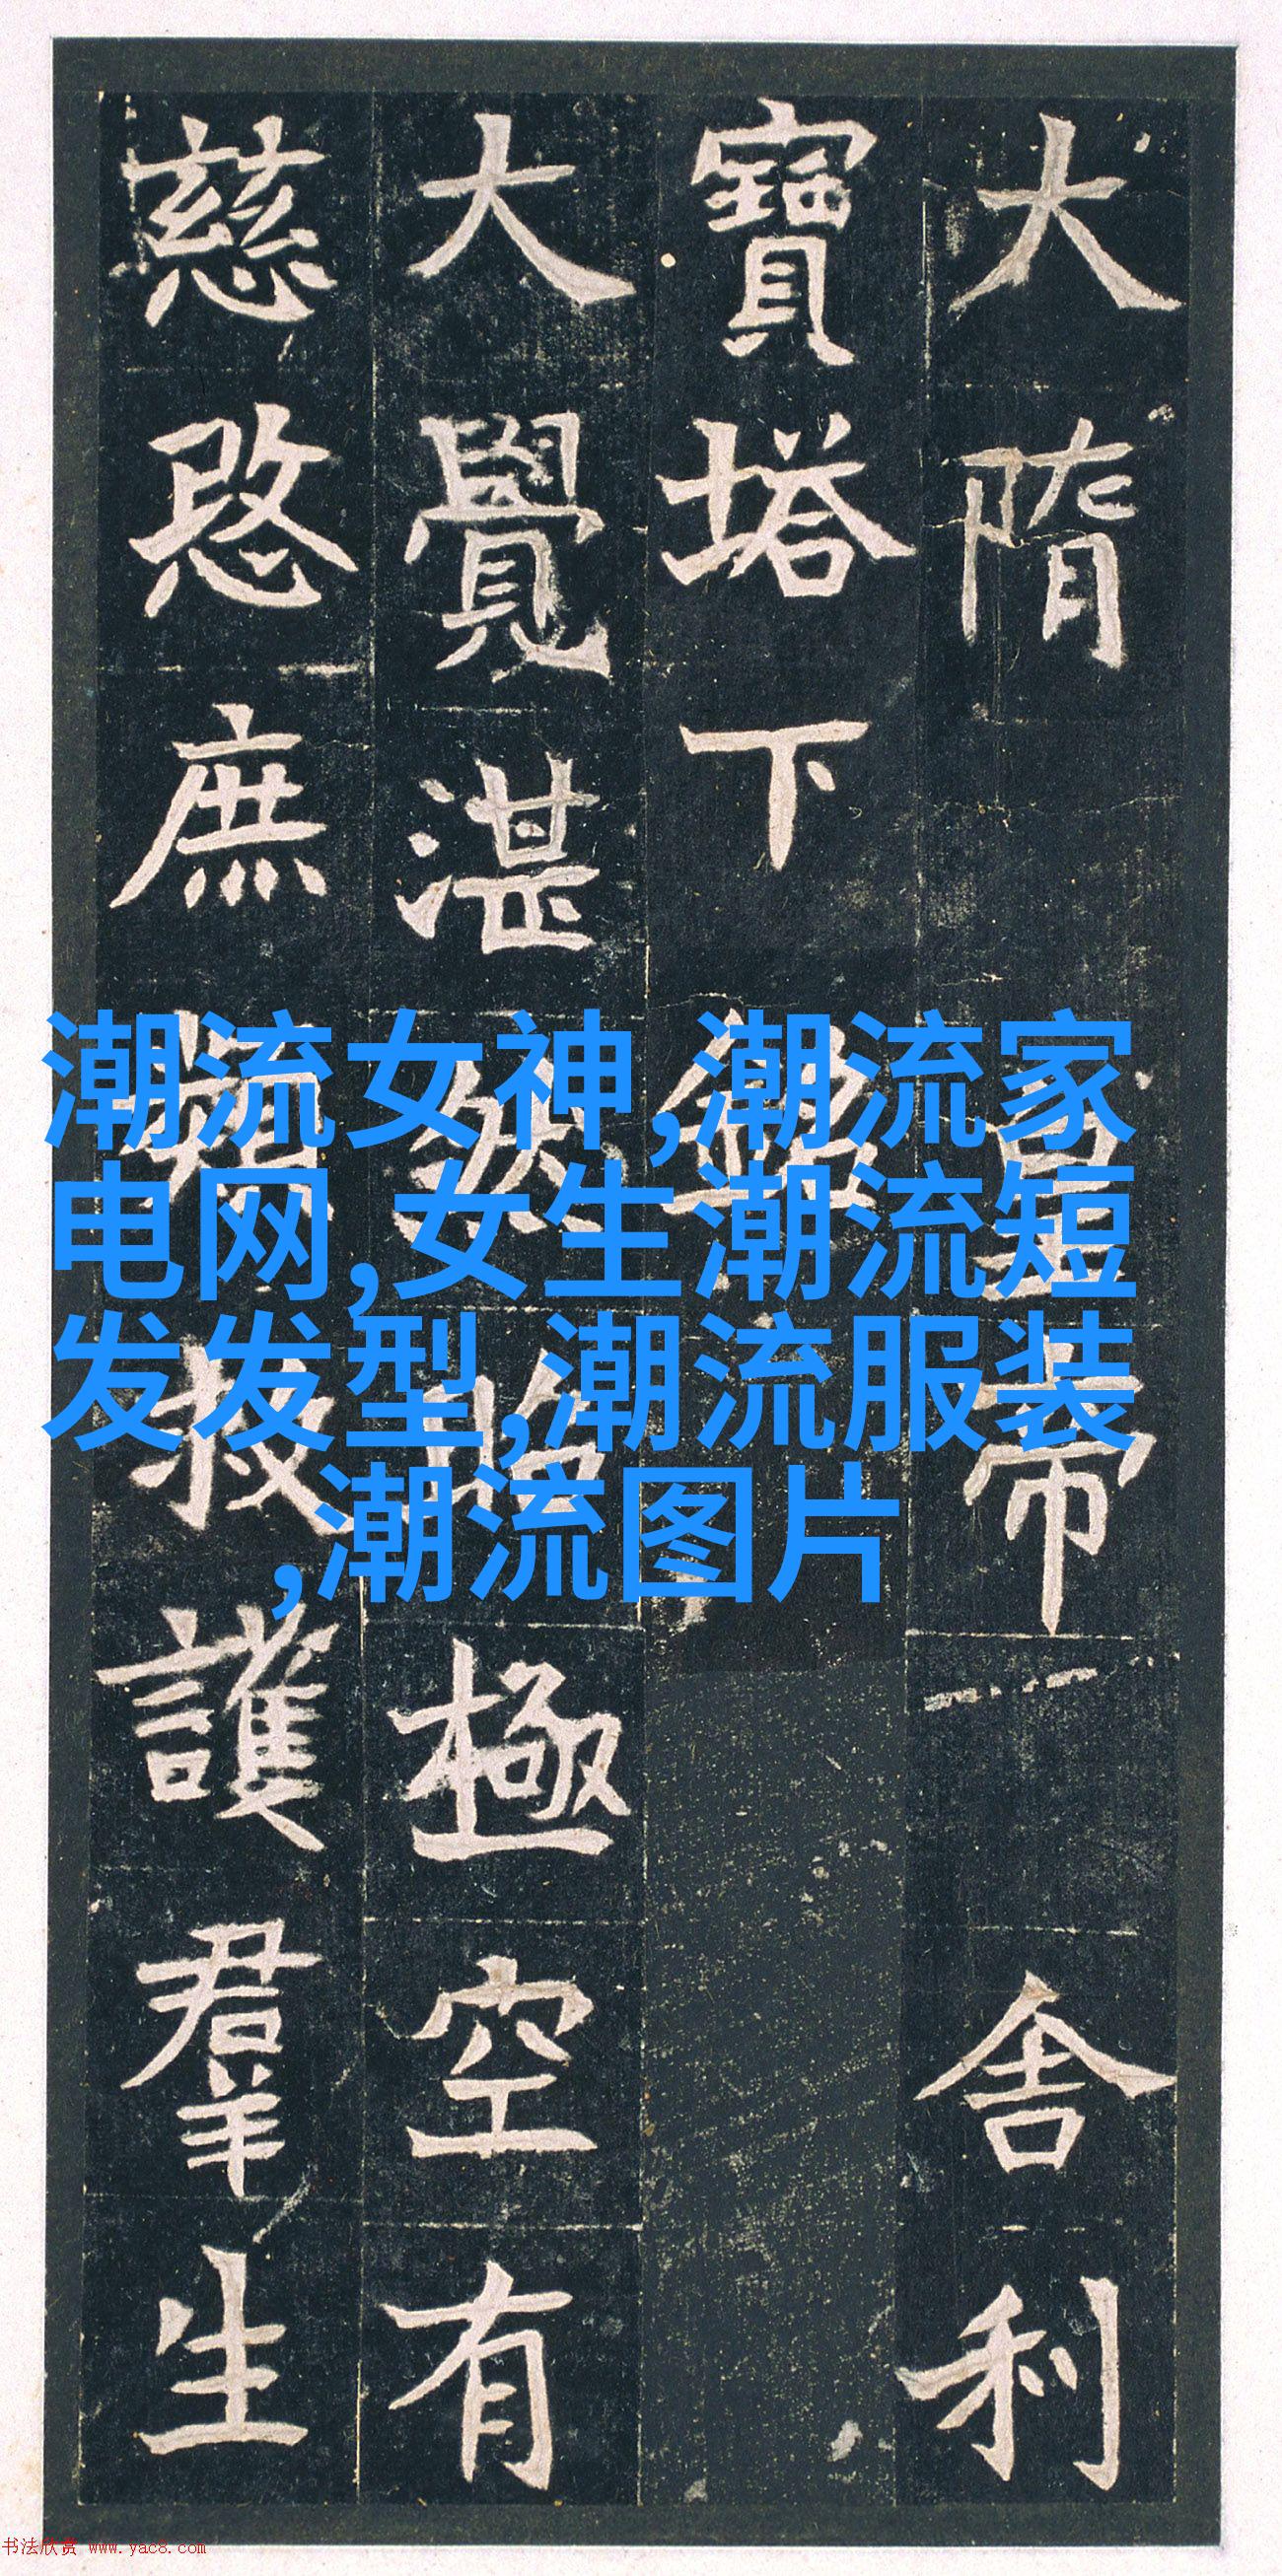 大隋皇帝舍利
寶塔下銘
大覺湛然昭極空有
慈愍庶類救護羣生
潮流女神,潮流家
电网,女生潮流短
发发型,潮流服装
,潮流图片
书法欣赏 www.yac8.com